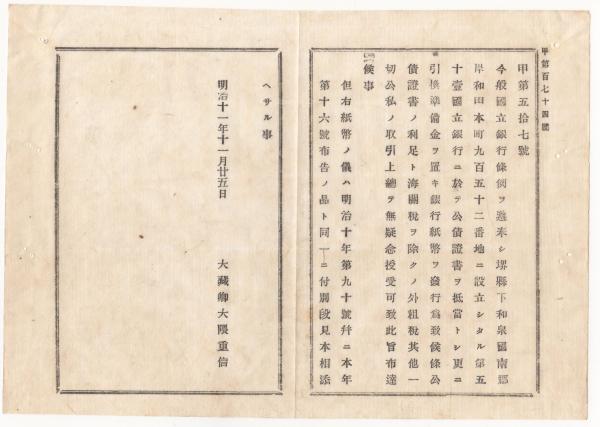 甲第百七十四號
甲第五拾七號
今般國立銀行條例ヲ遵奉シ堺縣下和泉國南郡
岸和田本町九百五十二番地ニ設立シタル第五
十壹國立銀行ニ於テ公債證書ヲ抵當トシ更ニ
引換準備金ヲ置キ銀行紙幣ヲ發行爲致候條公
債證書ノ利足ト海關税ヲ除クノ外租税其他一
切公私ノ取引上總テ無疑念授受可致此旨布達
候事
但右紙幣ノ儀ハ明治十年第九十號幷ニ本年
第十六號布告ノ品ト同一ニ付別段見本相添
ヘサル事
明治十一年十一月廿五日
大藏卿大隈重信